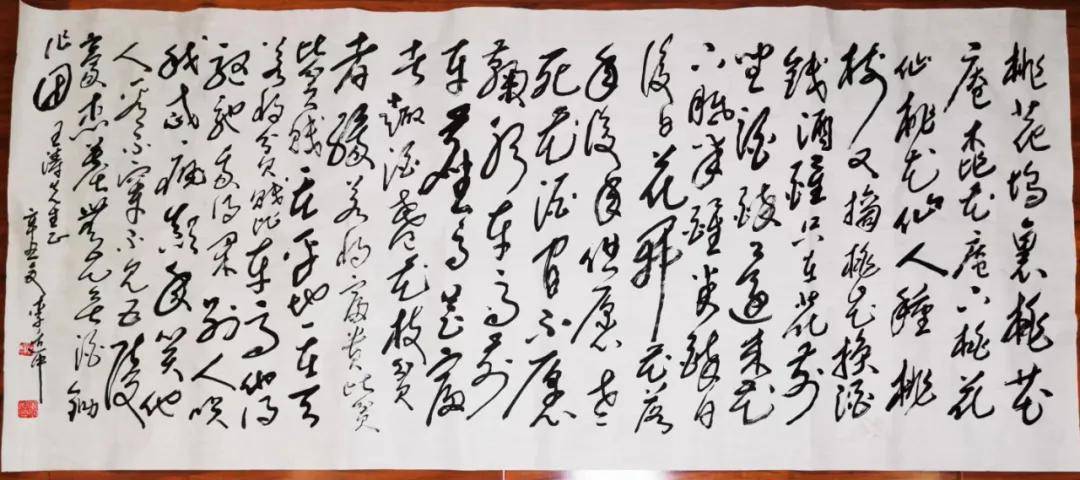 桃花坞裏桃花
庵桃花庵下桃花
仙桃花仙人種桃
树又摘桃花换酒
錢酒醒只在花前
坐酒醉还来花
下眠半醒半醉日
復日花開花落
年復年但愿老
死花酒间不愿
鞠躬车马前
车尘马足富
者趣酒盏花枝贫
者缘若将富贵比贫
比贫贱一在平地一在天
若将贫贱比车马他得
驱驰我得闲别人笑
我忒疯癫我笑他
人看不穿不见五陵
豪杰墓无花无酒锄
作田 王涛先生正
辛丑夏 李